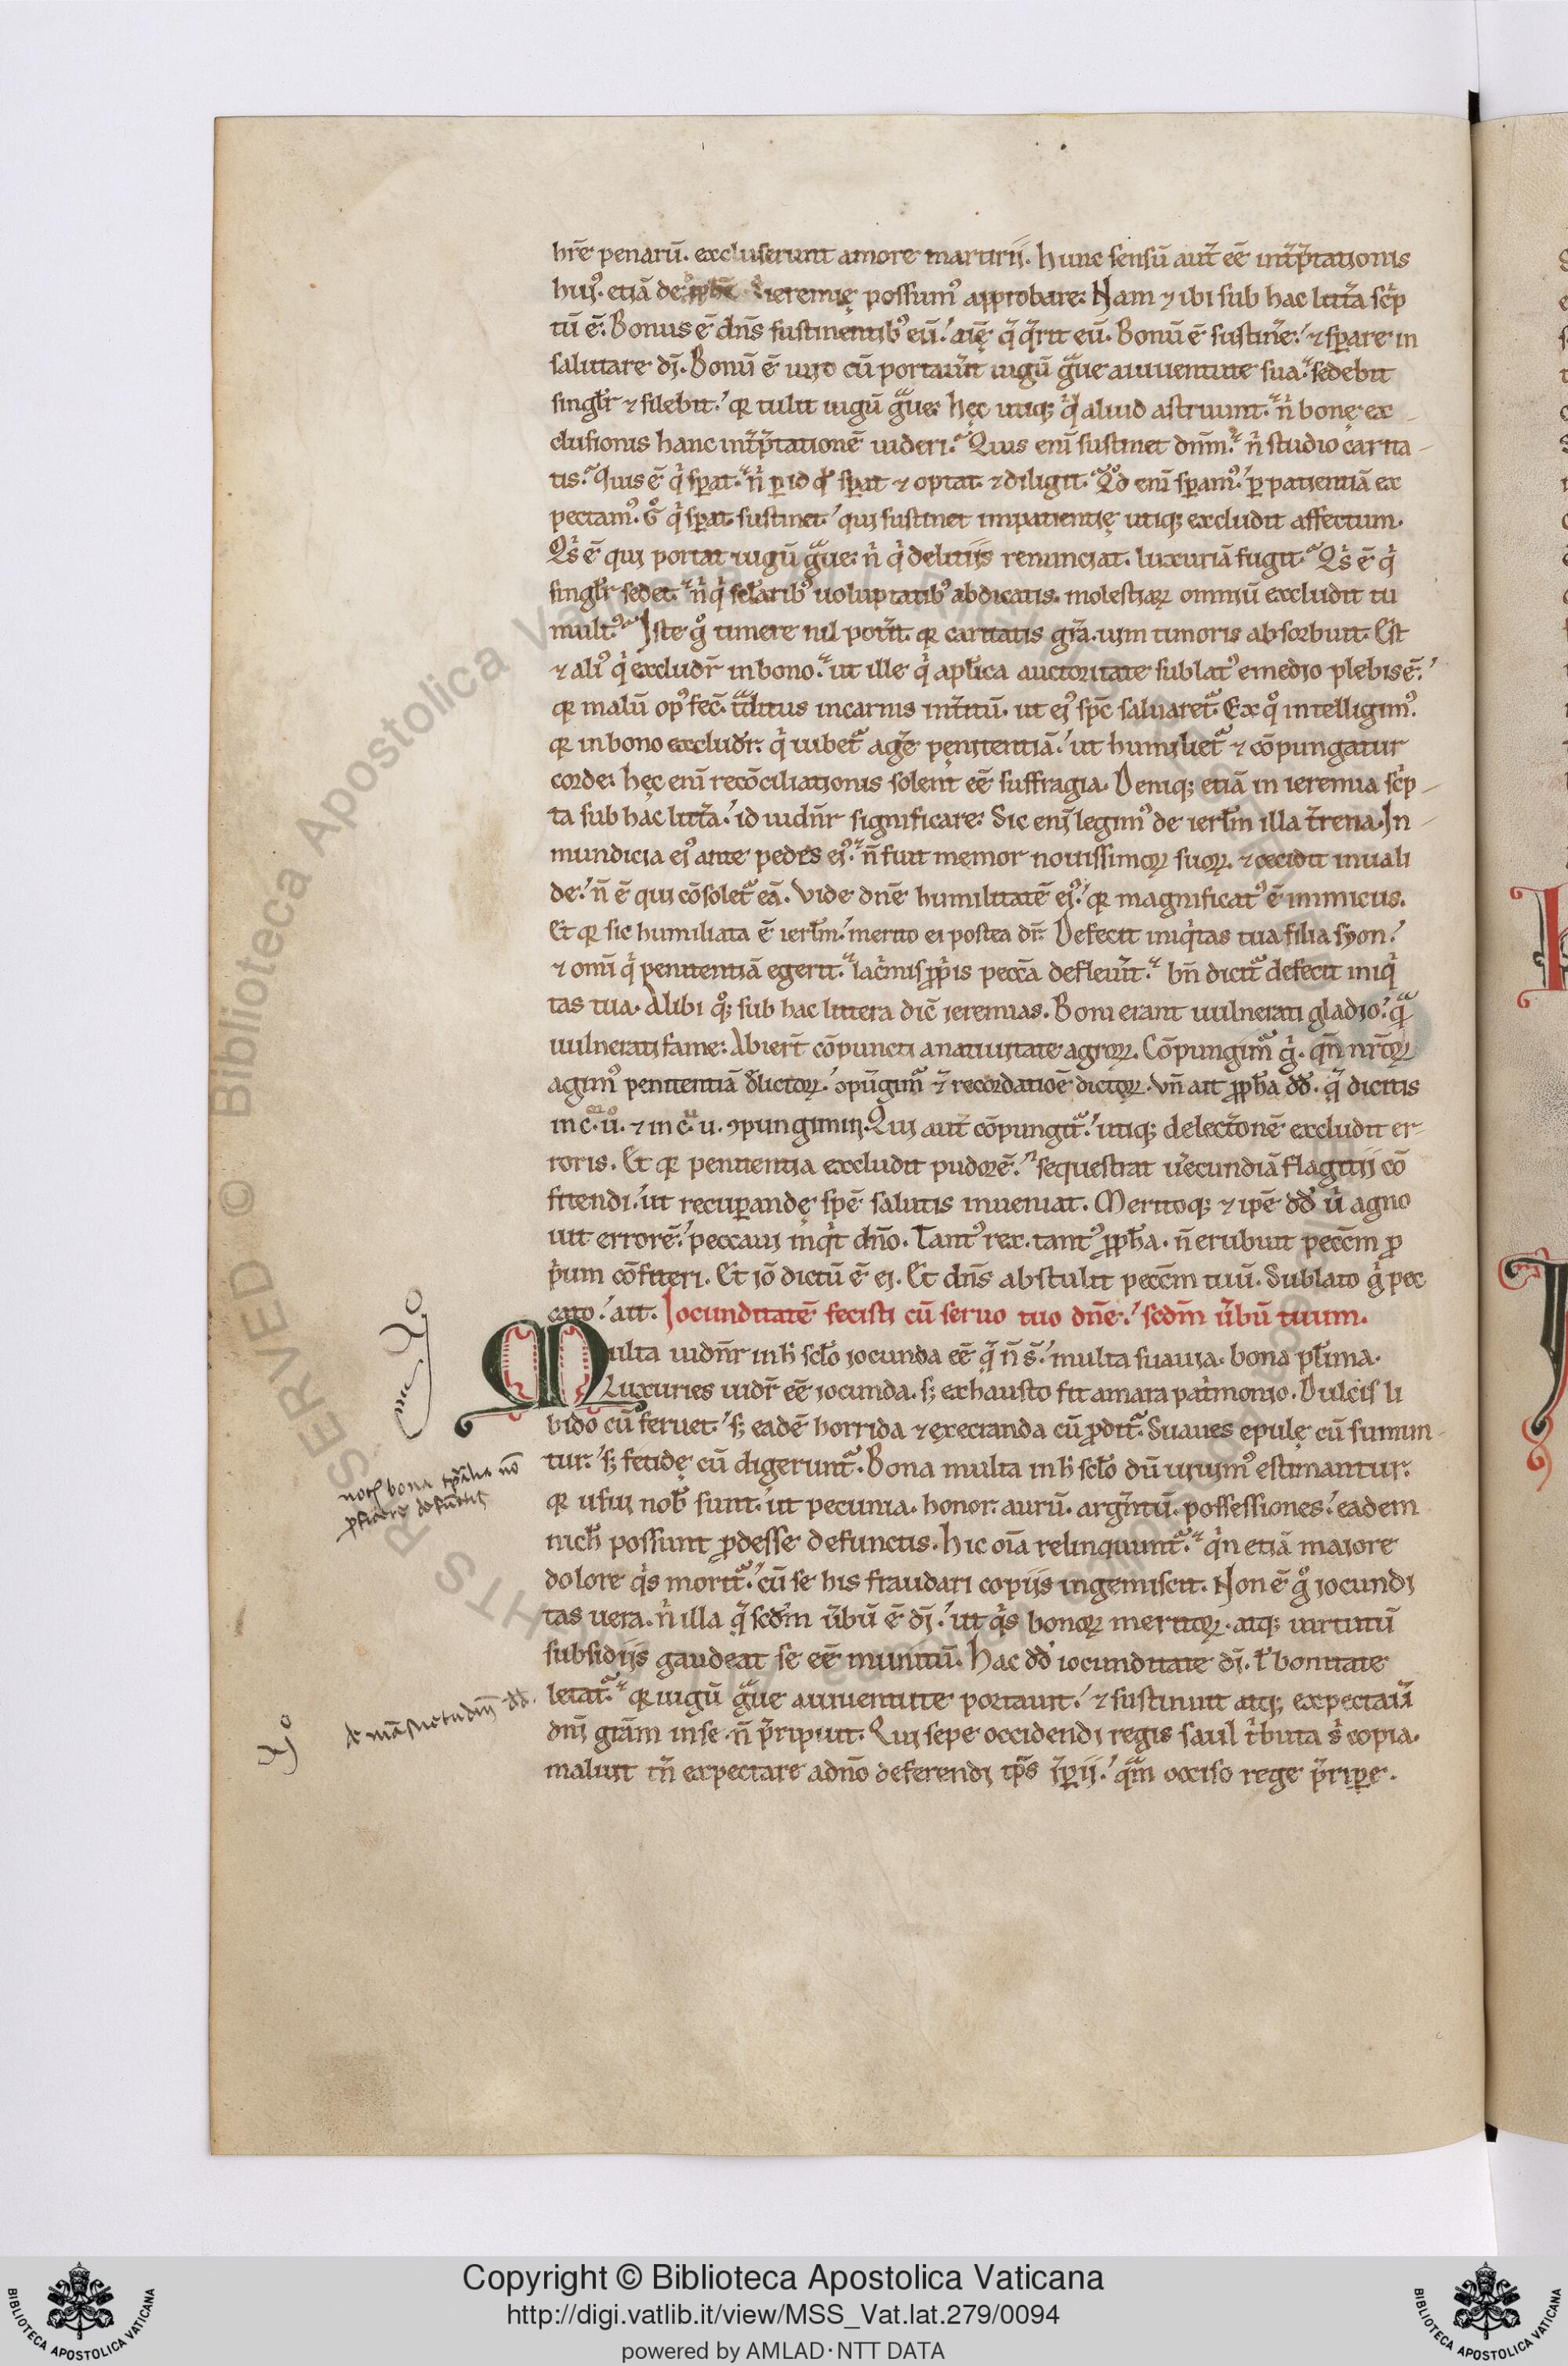 hr̄e penarū. excluserunt amore martirii. Hunc sensū aut̄ eē int̄p̄tationis
huiꝰ. etiā de ieremię possumꝰ approbare. Nam ⁊ ibi sub hac litt̄a sc̄p
tū ē. Bonus ē dn̄s sustinentibꝰ eū. aīę q̄ q̄rit eū. Bonū ē sustin̄e. ⁊ sꝑare in
salutare dī. Bonū ē uiro cū portau̅it iugū g̃ue aiuuentute sua. sedebit
singl̄r ⁊ silebit. qꝛ tulit iugū g̃ue. hęc utiqꝫ qͥd aliud astruunt. n̄ bonę ex
clusionis hanc int̄p̄tationē uideri. Quis enī sustinet dn̄m. nͥ studio carita
tis. Quis ē qͥ sꝑat. nͥ ꝑ id qd̄ sꝑat ⁊ optat. ⁊ diligit. Qd̄ enī sꝑamꝰ. ꝑ patientiā ex
pectamꝰ. gͦ qͥ sꝑat sustinet. qui sustinet impatientię utiqꝫ excludit affectum.
Qͥs ē qui portat iugū g̃ue. nͥ qͥ delitiis renunciat. luxuriā fugit. Qͥs ē qͥ
singl̄r sedet. nͥ qͥ scl̄aribꝰ uoluptatibꝰ abdicatis. molestiaꝝ omniū excludit tu
multꝰ. Iste gͦ timere nil pot̄it. qꝛ caritatis gr̄a. uim timoris absorbuit. Est
⁊ aliꝰ qͥ excludit̄ in bono. ut ille qͥ apl̄ica auctoritate sublatꝰ emedio plebis ē.
qꝛ malū opꝰ fec̄. t̃ditus incarnis int̄itū. ut eiꝰ sp̄c saluaret᷑. Ex qͦ intelligimꝰ.
qꝛ in bono excludit̄. qͥ iubet᷑ ag̅e penitentiā. ut humiliet᷑ ⁊ cōpungatur
corde. hęc enī recōciliationis solent eē suffragia. Deniqꝫ etiā in ieremia sc̄p
ta sub hac litt̄a. id uidn̄r significare. Sic enī legimꝰ de ierl̄m illa t̄rena. In
mundicia eiꝰ ante pedes eiꝰ. n̄ fuit memor nouissimoꝝ suoꝝ. ⁊ cecidit inuali
de. n̄ ē qui cōsolet᷑ eā. Vide dn̄e humilitatē eiꝰ. qꝛ magnificatꝰ ē inimicus.
Et qꝛ sic humiliata ē ierl̄m. merito ei postea dr̄. Defecit iniqͥtas tua filia syon.
⁊ omī qͥ penitentiā egerit. lac̄mis ꝓpͥis pecc̄a defleu̅it. bn̄ dicit᷑ defecit iniqͥ
tas tua. Alibi qͦꝫ sub hac littera dic̄ ieremias. Boni erant uulnerati gladio. q̃
uulnerati fame. Abier̄t cōpuncti anatiuitate agroꝝ. Cōpungim᷑ gͥ. qn̄ nr̄oꝝ
agimꝰ penitentiā delictoꝝ. ꝯpūgim᷑ ⁊ recordatiōē dictoꝝ. Vn̄ ait ꝓph̄a dd̄. q̄ dicitis
in c̄. u̅. ⁊ in c̄. u. ꝯpungimini. Qui aut̄ cōpungit᷑. utiqꝫ delect̄onē excludit er
roris. Et qꝛ penitentia excludit pudorē. sequestrat u̅ecundiā flagitii cō
fitendi. ut recuꝑandę spē salutis inueniat. Meritoqꝫ ⁊ ip̄e dd̄ uͥ agno
uit errorē. peccaui inqͥt dn̄o. Tantꝰ rex. tantꝰ ꝓph̄a. n̄ erubuit pecc̄m ꝓ
pͥum cōfiteri. Et iō dictū ē ei. Et dn̄s abstulit pecc̄m tuū. Sublato gͥ pec
cato. ait. Iocunditatē fecisti cū seruo tuo dn̄e. scd̄m u̅bū tuum.
Multa uidn̄r inh̄ scl̄o iocunda eē q̄ n̄ s̄. multa suauia. bona pl̄ima.
Luxuries uidr̄ eē iocunda. sꝫ exhausto fit amara pat̄monio. Dulcis li
bido cū feruet. sꝫ eadē horrida ⁊ execranda cū ꝓdit᷑. Suaues epulę cū sumun
tur. sꝫ fetidę cū digerunt᷑. Bona multa inh̄ scl̄o dū uiuimꝰ estimantur.
qꝛ usui nob̄ sunt. ut pecunia. honor. aurū. argn̄tū. possessiones. eadem
nich̄ possunt ꝓdesse defunctis. Hic oīa relinquunt᷑. qͥn etiā maiore
dolore qͥs morit᷑. cū se his fraudari copiis ingemiscit. Non ē gͦ iocundi
tas uera. nͥ illa q̄ scd̄m u̅bū ē dī. ut qͥs bonoꝝ meritoꝝ. atqꝫ uirtutū
subsidiis gaudeat se eē munitū. Hac dd̄ iocunditate dī. ł bonitate
letat᷑. qꝛ iugū g̃ue aiuuentute portauit. ⁊ sustinuit atqꝫ expectau̅
dnī gr̄am in se. n̄ p̄ripuit. Qui sepe occidendi regis saul tͥbuta sͥ copia.
maluit tn̄ expectare adn̄o deferendi tp̄s īꝑii. q̃m occiso rege p̄riꝑe.
noth bona tp̄alia nō
ꝓficere defūctis
de māsuetudine dd̄.
Copyright © Biblioteca Apostolica Vaticana
http://digi.vatlib.it/view/MSS_Vat.lat.279/0094
powered by AMLAD·NTT DATA
BIBLIOTECA APOSTOLICA VATICANA
BIBLIOTECA APOSTOLICA VATICANA